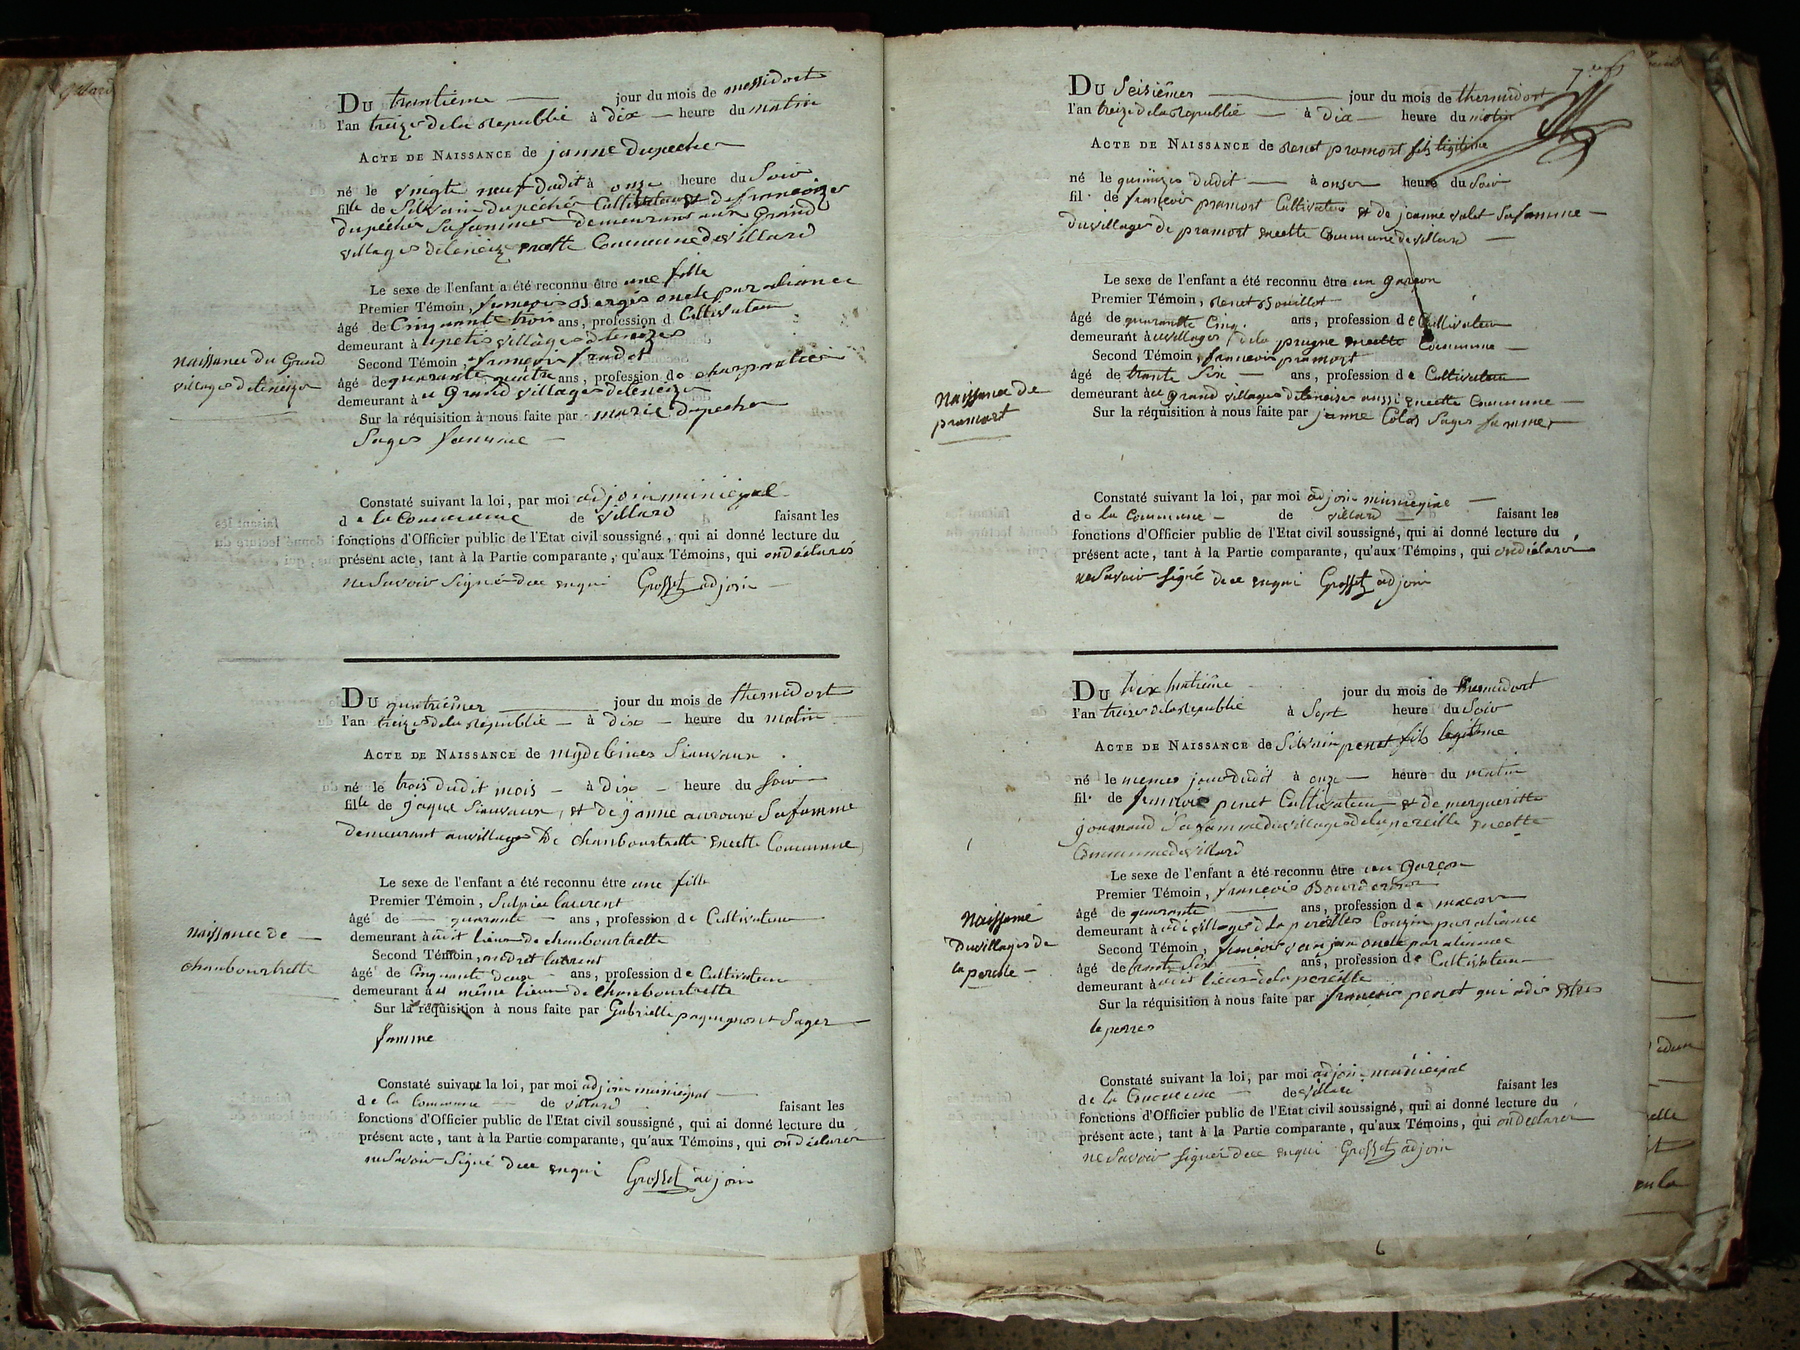 Du trantième jour du mois de messidort
l'an treize de la Republie à dix heure du matin
Acte de Naissance de janne dupecher
né le vingte neuf dudit à onze heure du Soir
fille de Silvain dupecher Cultivateur et de francoize
dupecher Safamme demeurans aux Grand
villages deleneize encette Commune de villard
Le sexe de l'enfant a été reconnu être une fille
Premier Témoin, francois Bergis oncle par aliance
âgé de Cinquante trois ans, profession d Cultivateur
demeurant à lepetis villages
Second Témoin, francois fradet
âgé de quarante quatre ans, profession de charpantier
demeurant à u Grand villages deleneize
Naissance du Grand
villages deleneize
Sur la réquisition à nous faite par marie dupecher
Sages famme
Constaté suivant la loi, par moi adjoin municipal
de la Commune de villard faisant les
fonctions d'Officier public de l'Etat civil soussigné, qui ai donné lecture du
présent acte, tant à la Partie comparante, qu'aux Témoins, qui ondéclarés
ne Savoir Signé dece enqui Grosset adjoin
Du quatriêmer jour du mois de thermidort
l'an treize dela Republie à Dix heure du matin
Acte de Naissance de
né le trois dudit mois à Dix heure du Soir
fille de jaque Siauvaux, et de janne auroux Safamme
demeurant auvillage De chanbourtrette encette Commune
Le sexe de l'enfant a été reconnu être une fille
Premier Témoin, Sulpice laurent
âgé de quarante ans, profession de Cultivateur
demeurant à udit lieux de chanbourtrette
Second Témoin, andret laurent
âgé de Cinquante deux ans, profession de Cultivateur
demeurant à u même lieux de chanbourtrette
Naissance de
chanbourtrette
Sur la réquisition à nous faite par Gabrielle Sages
famme
Constaté suivant la loi, par moi adjoin municipal
de la Commune de villard faisant les
fonctions d'Officier public de l'Etat civil soussigné, qui ai donné lecture du
présent acte, tant à la Partie comparante, qu'aux Témoins, qui ondéclarér
ne Savoir Signé dece enqui Grosset adjoin
Du Seisiêmer jour du mois de thermidort
l'an treize dela Republie à dix heure du matin
Acte de Naissance de Renet pramort fils légitime
né le quinzes dudit à onser heure du Soir
fil de françois pramort Cultivateur et de jeanne valet Safamme
du village de pramort encette Commune de villard
Le sexe de l'enfant a été reconnu être un Garçon
Premier Témoin, Renet Bouillot
âgé de quarante Cinq ans, profession de Cultivateur
demeurant à uvillages de la prugne encette Commune
Second Témoin, francois pramort
âgé de trante Six ans, profession de Cultivateur
demeurant à u Grand villages deleneize aussi encette Commune
Naissance de
pramort
Sur la réquisition à nous faite par janne Colas Sages famme
Constaté suivant la loi, par moi adjoin municipal
de la Commune de villard faisant les
fonctions d'Officier public de l'Etat civil soussigné, qui ai donné lecture du
présent acte, tant à la Partie comparante, qu'aux Témoins, qui ondéclarér
ne Savoir Signé dece enqui Grosset adjoin
Du Dix huitiême jour du mois de thermidort
l'an treize dela Republie à Sept heure du Soir
Acte de Naissance de Silvain penot fils legitime
né le memes jour dudit à onze heure du matin
fil de francois penot Cultivateur et de margueritte
jouanaud Safamme du villages dela pereille encette
Commune de villard
Le sexe de l'enfant a été reconnu être un Garçon
Premier Témoin, françois
âgé de quarante ans, profession de macon
demeurant à udi villages d la pereilles Couzin par aliance
Second Témoin, françois oncle par aliance
âgé de trante Six ans, profession de Cultivateur
demeurant à udit lieux dela pereille
Naissance
Du villages de
la pereille
Sur la réquisition à nous faite par francois penot qui adis Etres
le perres
Constaté suivant la loi, par moi adjoin municipal
de la Commune de villard faisant les
fonctions d'Officier public de l'Etat civil soussigné, qui ai donné lecture du
présent acte, tant à la Partie comparante, qu'aux Témoins, qui ondéclarér
ne Savoir Signér dece enqui Grosset adjoin